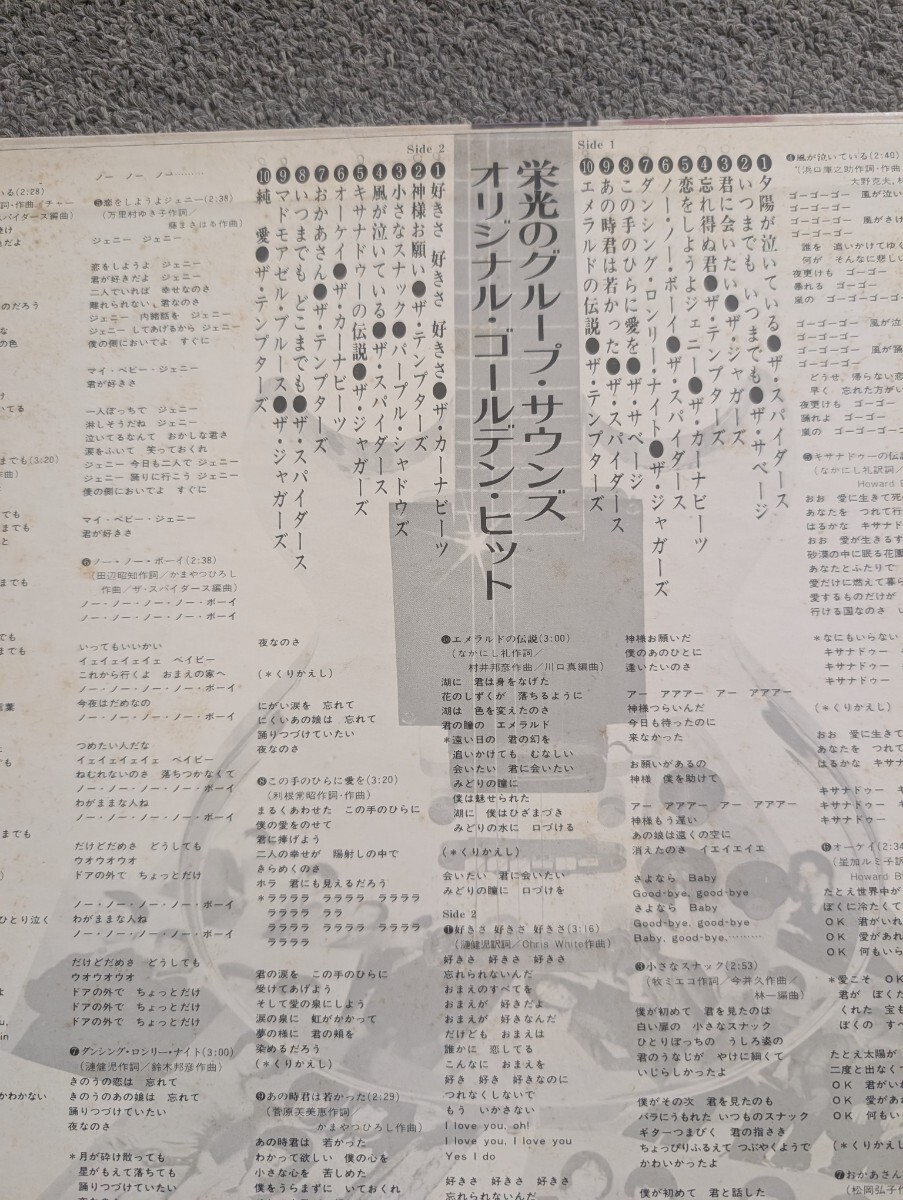 栄光のグループ・サウンズ
オリジナル・ゴールデン・ヒット
Side 1
❶夕陽が泣いている●ザ・スパイダース
❷いつまでも いつまでも●ザ・サベージ
❸君に会いたい●ザ・ジャガーズ
❹忘れ得ぬ君●ザ・テンプターズ
❺恋をしようよジェニー●ザ・カーナビーツ
❻ノー・ノー・ボーイ●ザ・スパイダース
❼ダンシング・ロンリー・ナイト●ザ・ジャガーズ
❽この手のひらに愛を●ザ・サベージ
❾あの時君は若かった●ザ・スパイダース
❿エメラルドの伝説●ザ・テンプターズ
Side 2
❶好きさ 好きさ 好きさ●ザ・カーナビーツ
❷神様お願い●ザ・テンプターズ
❸小さなスナック●パープル・シャドウズ
❹風が泣いている●ザ・スパイダース
❺キサナドゥーの伝説●ザ・ジャガーズ
❻オーケイ●ザ・カーナビーツ
❼おかあさん●ザ・テンプターズ
❽いつまでも どこまでも●ザ・スパイダース
❾マドモアゼル・ブルース●ザ・ジャガーズ
❿純 愛●ザ・テンプターズ
いる(2:28)
詞・作曲/チャー
スパイダース編曲)
のだろう
の色
までも(3:20)
ひとり泣く
かわかない
ノー ノー ノー………
❺恋をしようよジェニー(2:38)
(万里村ゆき子作詞/
藤まさはる作曲)
ジェニー ジェニー
恋をしようよ ジェニー
君が好きだよ ジェニー
二人でいれば 幸せなのさ
離れられない 君なのさ
ジェニー 内緒話を ジェニー
ジェニー してあげるから ジェニー
僕の側においでよ すぐに
マイ・ベビー・ジェニー
君が好きさ
一人ぼっちで ジェニー
淋しそうだね ジェニー
泣いてるなんて おかしな君さ
涙をふいて 笑っておくれ
ジェニー 今日も二人で ジェニー
ジェニー 踊りに行こう ジェニー
僕の側においでよ すぐに
マイ・ベビー・ジェニー
君が好きさ
❻ノー・ノー・ボーイ(2:38)
(田辺昭知作詞/かまやつひろし
作曲/ザ・スパイダース編曲)
ノー・ノー・ノー・ノー・ボーイ
ノー・ノー・ノー・ノー・ボーイ
いってもいいかい
イェイェイェイェ ベイビー
これから行くよ おまえの家へ
ノー・ノー・ノー・ノー・ボーイ
今夜はだめなの
ノー・ノー・ノー・ノー・ボーイ
つめたい人だな
イェイェイェイェ ベイビー
ねむれないのさ 落ちつかなくて
ノー・ノー・ノー・ノー・ボーイ
わがままな人ね
ノー・ノー・ノー・ノー・ボーイ
だけどだめさ どうしても
ウオウオウオ
ドアの外で ちょっとだけ
ノー・ノー・ノー・ノー・ボーイ
わがままな人ね
ノー・ノー・ノー・ノー・ボーイ
だけどだめさ どうしても
ウオウオウオ
ドアの外で ちょっとだけ
ドアの外で ちょっとだけ
ドアの外で ちょっとだけ
❼ダンシング・ロンリー・ナイト(3:00)
(漣健児作詞/鈴木邦彦作曲)
きのうの恋は 忘れて
きのうのあの娘は 忘れて
踊りつづけていたい
夜なのさ
*月が砕け散っても
星がもえて落ちても
踊りつづけていたい
夜なのさ
(*くりかえし)
にがい涙を 忘れて
にくいあの娘は 忘れて
踊りつづけていたい
夜なのさ
❽この手のひらに愛を(3:20)
(利桜常昭作詞・作曲)
まるくあわせた この手のひらに
僕の愛をのせて
君に捧げよう
二人の幸せが 陽射しの中で
きらめくのさ
ホラ 君にも見えるだろう
*ラララララ ララララ ララララ
ララララ ララ
ララララ ララララ ララララ
ララララ
君の涙を この手のひらに
受けてあげよう
そして愛の泉にしよう
涙の泉に 虹がかかって
夢の様に 君の頬を
染めるだろう
(*くりかえし)
❾あの時君は若かった(2:29)
(菅原芙美恵作詞/
かまやつひろし作曲)
あの時君は 若かった
わかって欲しい 僕の心を
小さな心を 苦しめた
僕をうらまずに いておくれ
❿エメラルドの伝説(3:00)
(なかにし礼作詞/
村井邦彦作曲/川口真編曲)
湖に 君は身をなげた
花のしずくが 落ちるように
湖は 色を変えたのさ
君の瞳の エメラルド
*遠い日の 君の幻を
追いかけても むなしい
会いたい 君に会いたい
みどりの瞳に
僕は魅せられた
湖に 僕はひざまづき
みどりの水に 口づける
(*くりかえし)
会いたい 君に会いたい
みどりの瞳に 口づけを
Side 2
❶好きさ 好きさ 好きさ(3:16)
(漣健児訳詞/Chris White作曲)
好きさ 好きさ 好きさ
忘れられないんだ
おまえのすべてを
おまえが 好きだよ
おまえが 好きなんだ
だけども おまえは
誰かに 恋してる
こんなに おまえを
好き 好き 好きなのに
つれなくしないで
もう いかさない
I love you, oh!
I love you, I love you
Yes I do
好きさ 好きさ 好きさ
忘れられないんだ
神様お願いだ
僕のあのひとに
逢いたいのさ
アー アアアー アー アアアー
神様つらいんだ
今日も待ったのに
来なかった
お願いがあるの
神様 僕を助けて
アー アアアー アー アアアー
神様もう遅い
あの娘は遠くの空に
消えたのさ イエイエイエ
さよなら Baby
Good-bye, good-bye
さよなら Baby
Good-bye, good-bye
Baby, good-bye,………
❸小さなスナック(2:53)
(牧ミエコ作詞/今井久作曲/
林一編曲)
僕が初めて 君を見たのは
白い扉の 小さなスナック
ひとりぼっちの うしろ姿の
君のうなじが やけに細くて
いじらしかったよ
僕がその次 君を見たのも
バラにうもれた いつものスナック
ギターつまびく 君の指さき
ちょっぴりふるえて つぶやくようで
かわいかったよ
僕が初めて 君と話した
❹風が泣いている(2:40)
(浜口庫之助作詞・作曲
大野克夫
ゴーゴーゴー 風が泣い
ゴーゴーゴー
ゴーゴーゴー 風がさけ
ゴーゴーゴー
誰を 追いかけてゆく
何が そんなに悲しい
夜更けも ゴーゴー
暴れる ゴーゴー
嵐の ゴーゴーゴーゴー
ゴーゴーゴー 風が泣
ゴーゴーゴー
ゴーゴーゴー 風が踊
ゴーゴーゴー
どうせ、帰らない恋
早く 忘れた方がい
夜更けも ゴーゴー
踊れよ ゴーゴー
嵐の ゴーゴーゴーゴー
❺キサナドゥーの伝説
(なかにし礼訳詞/
Howard B
おお 愛に生きて死
あなたを つれて行
はるかな キサナド
おお 愛が生きるす
砂漠の中に眠る花園
あなたとふたりで
愛だけに燃えて暮ら
愛するものだけが
行ける国なのさ い
*なにもいらない
キサナドゥー キ
キサナドゥー キ
キサナドゥー
(*くりかえし)
おお 愛に生きて
あなたを つれて
はるかな キサナ
キサナドゥー キ
キサナドゥー キ
❻オーケイ(2:34
(星加ルミ子訳詞
Howard Bl
たとえ世界中が
ぼくに冷たくて
OK 君がいれ
OK 愛があれ
OK 何もいら
*愛こそ OK
君が ぼくた
くれた 宝も
ぼくの すべ
たとえ太陽が
二度と出なくて
OK 君がい
OK 愛があ
OK 何もい
(*くりかえし
❼おかあさん
(松岡弘子作